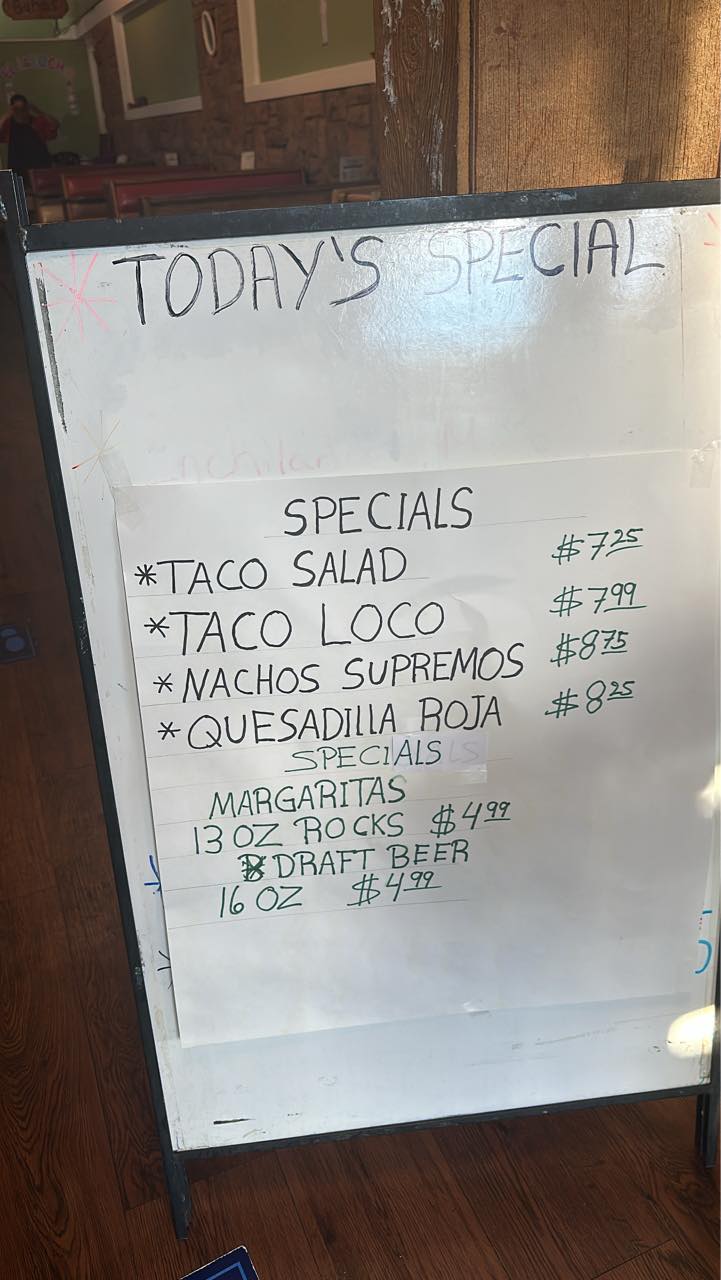 TODAY'S SPECIAL
SPECIALS
*TACO SALAD $7.25
*TACO LOCO $7.99
*NACHOS SUPREMOS $8.75
*QUESADILLA ROJA $8.25
SPECIALS
MARGARITAS
13 OZ ROCKS $4.99
DRAFT BEER
16 OZ $4.99